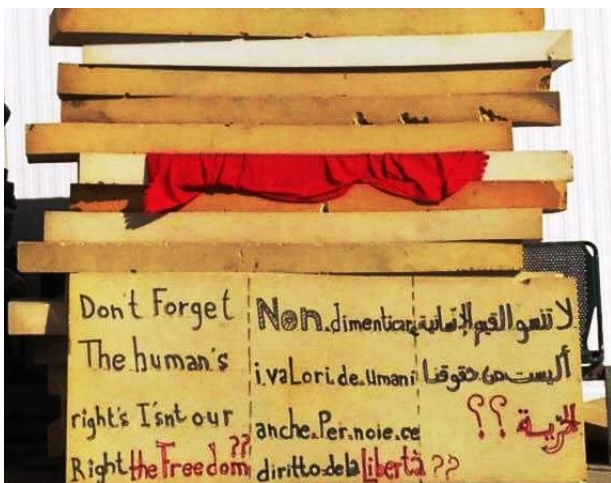 Don't Forget
The human's
right's I'snt our
Right the Freedom ??
Non.dimenticar
i.vaLori.de.umani
anche.Per.noie.ce
diritto.de.la Libertà ??
لا تنسو القيم الإنسانية
أليست من حقوقنا
الحرية ؟؟